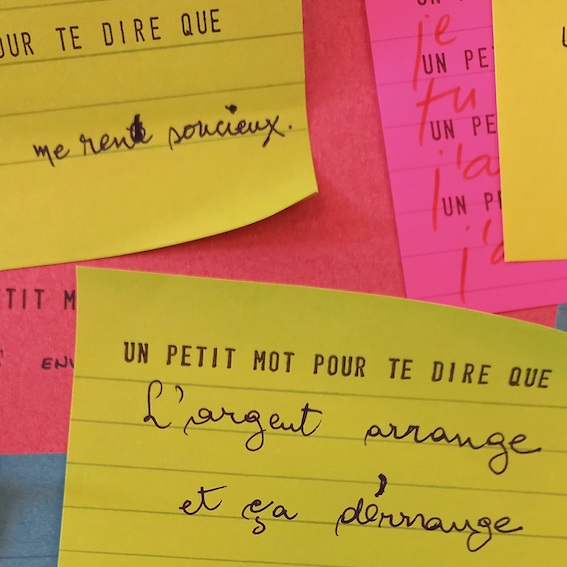 OUR TE DIRE QUE
me rend soucieux.
je
UN PE
tu
UN PE
j'a
UN P
j'a
TIT M
ENV
UN PETIT MOT POUR TE DIRE QUE
L'argent arrange
et ça dérrange